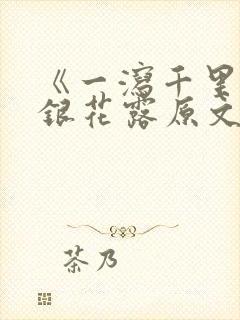 《一泻千里
银花露原文
茶乃